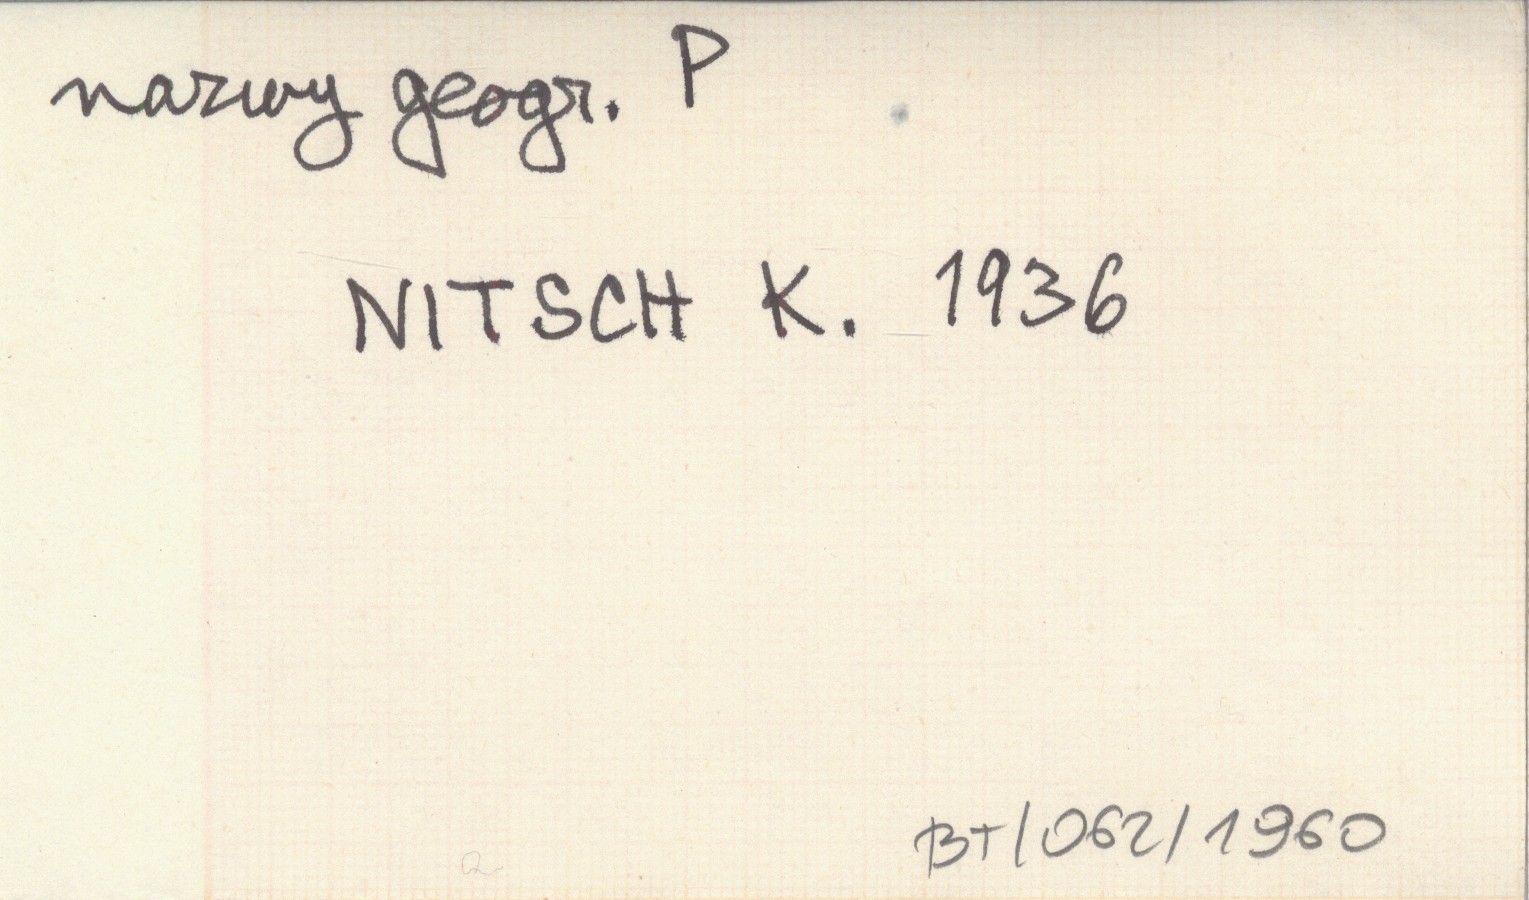 nazwy geogr. P
NITSCH K. 1936
BT/062/1960